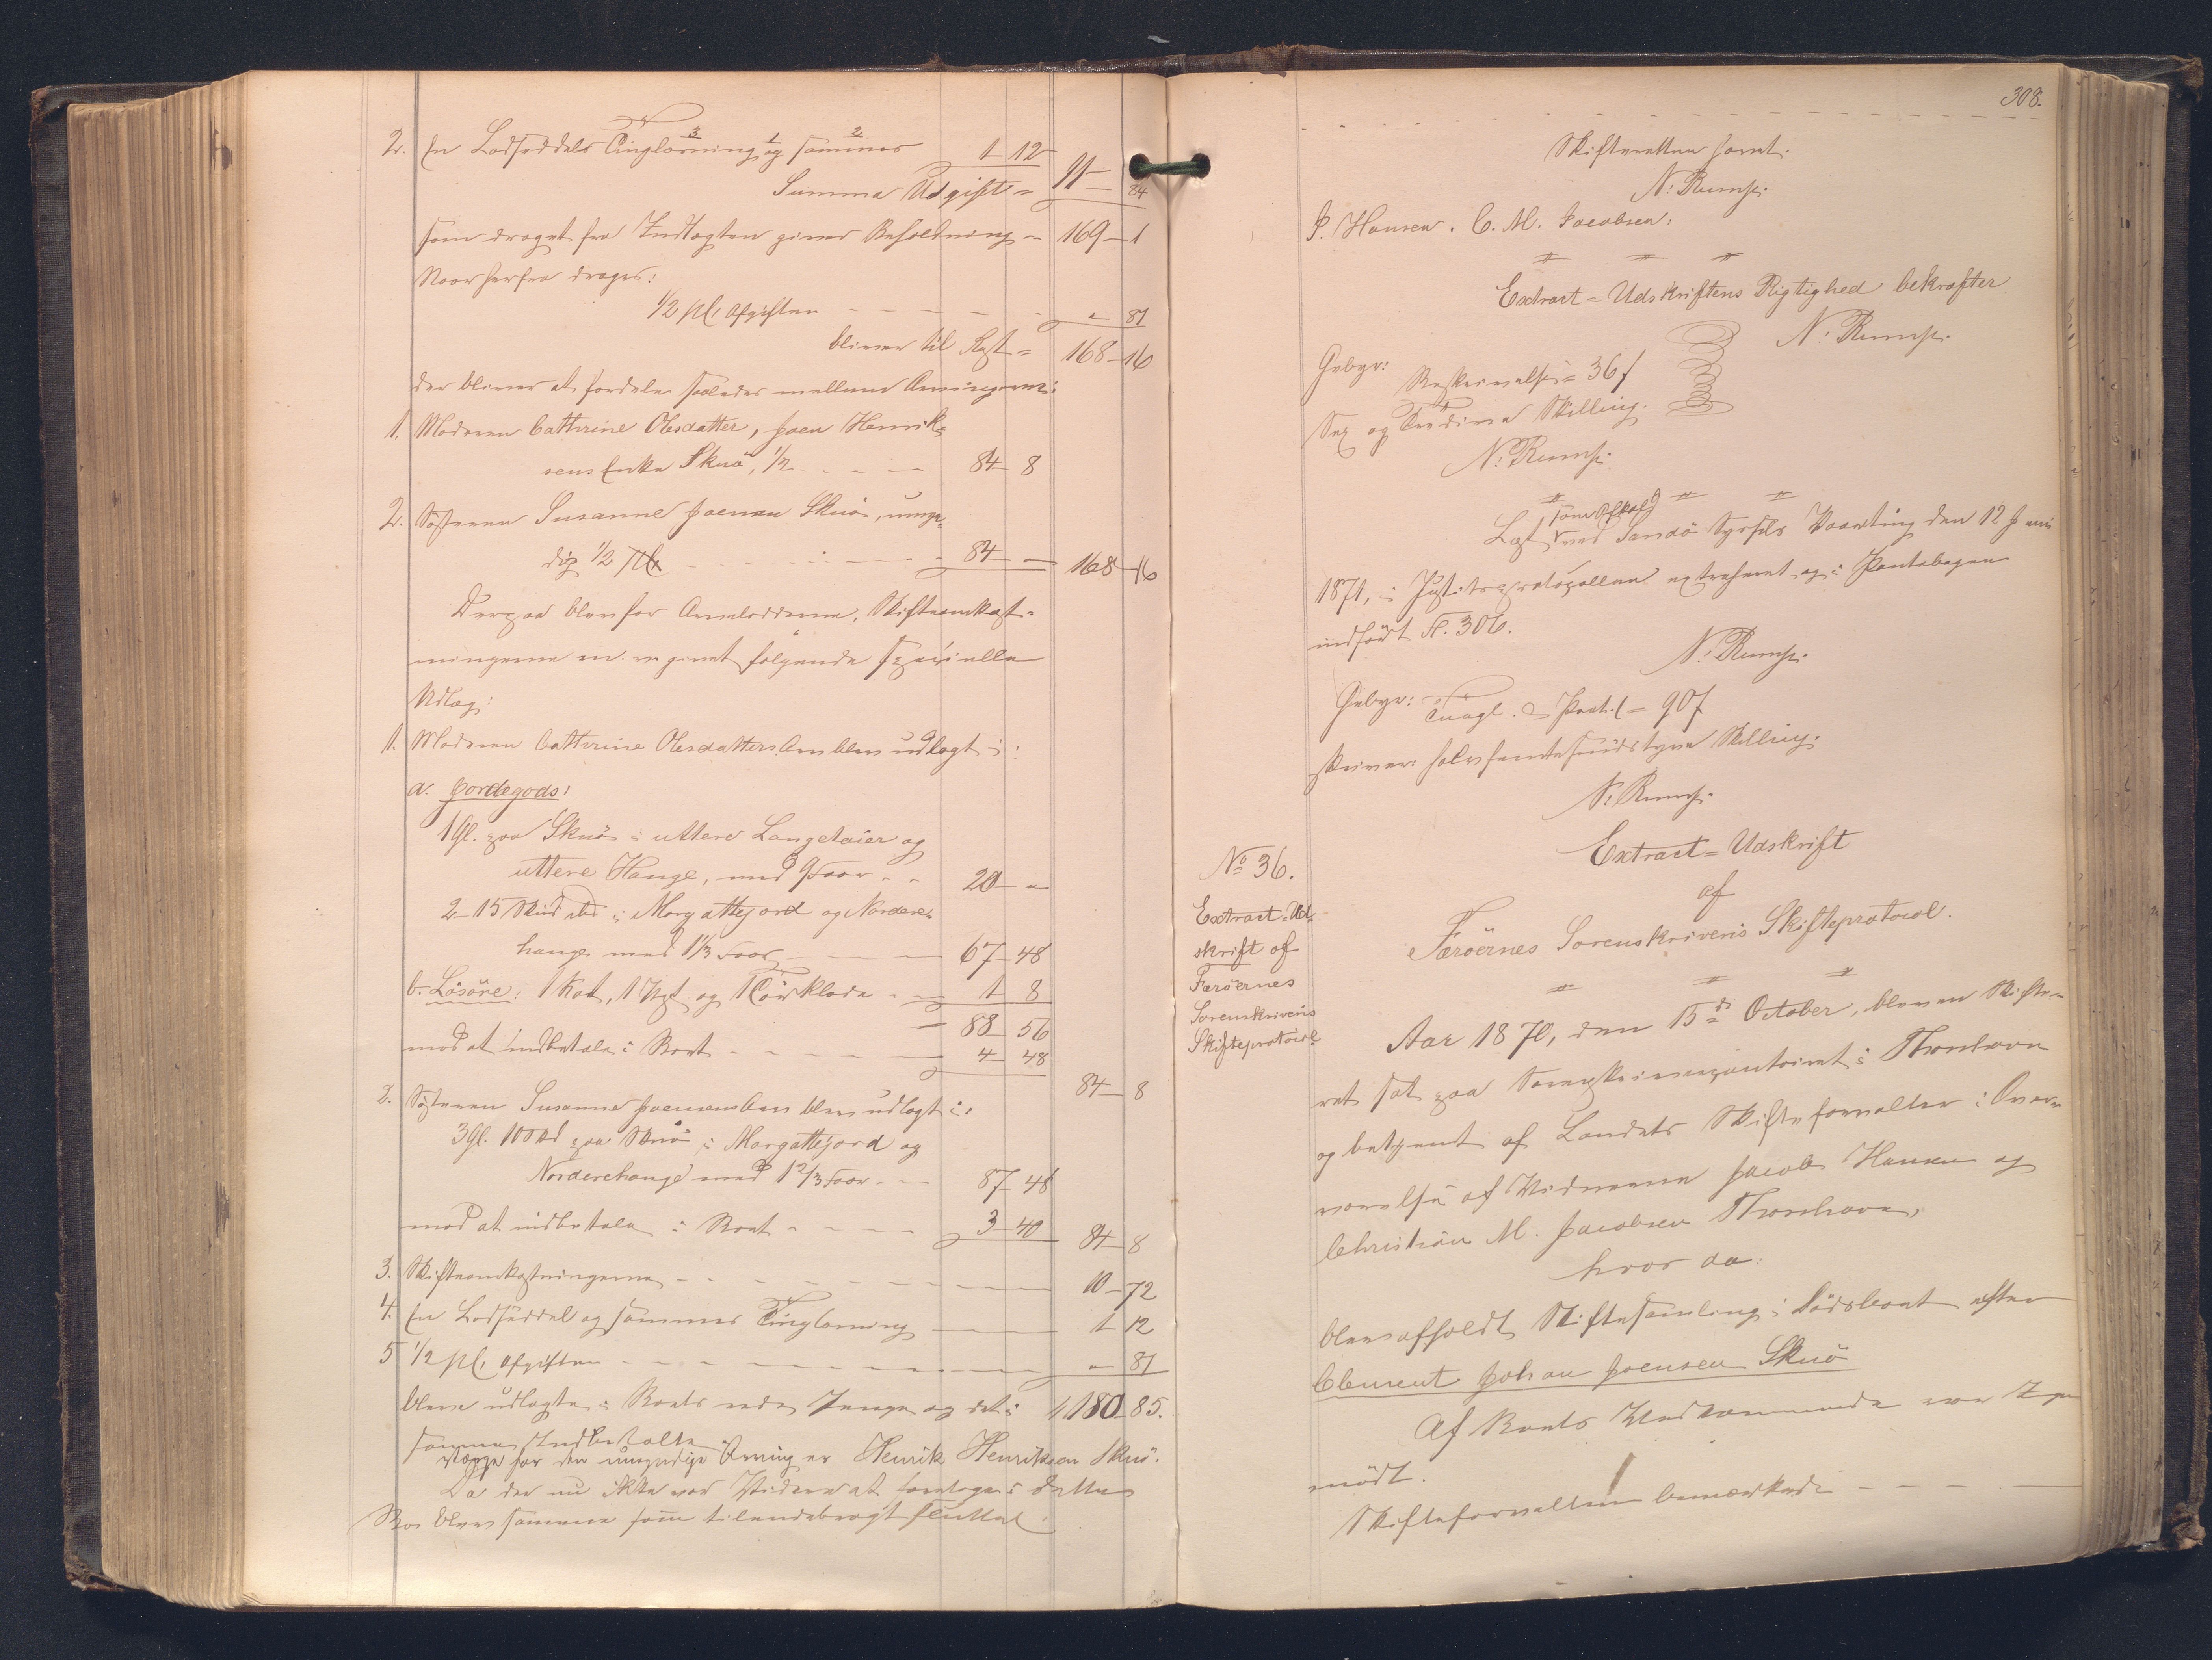 2. En Lodseddels Tinglæsning og sammes 1 12
Summa Udgift = 11 — 84
som draget fra Indtægten giver Beholdning — 169 — 1
Naar herfra drages:
1/2 pCt. Afgiften — — — — " 81
bliver til Rest = 168 — 16
der bliver at fordele saaledes mellem Arvingerne:
1. Moderen Cathrine Olesdatter, Joen Henrik-
sens Enke Skuö, 1/2 — — — 84 — 8
2. Søsteren Susanne Joensen Skuö, umyn-
dig 1/2 — — — 84 — 8
168 — 16
Derpaa blev for Arvelodderne, Skifteomkost-
ningerne m. v. givet følgende specielle
Udlæg:
1. Moderen Cathrine Olesdatters Arv blev udlagt i:
a. Jordegods:
1 Gl. paa Skuö i uttere Langetaier og
uttere Hauge, med Foor — — 20 — "
2 — 15 Skind ibd i Morgattejord og Nordere
hauge med 1 1/3 Foor — — — 67 — 48
b. Lösöre: 1 Kat, 1 og 1 Törklæde — — 1 8
— 88 56
mod at indbetale i Boet — — — 4 — 48
84 — 8
2. Søsteren Susanne Joensens Arv blev udlagt i:
3 Gl. 10 Skd paa Skuö i Morgattejord og
Norderehauge med 1 2/3 Foor — — 87 — 48
mod at indbetale i Boet — — — 3 — 40 84 — 8
3. Skifteomkostningerne — — — — 10 — 72
4. En Lodseddel og sammes Tinglæsning — — 1 12
5 1/2 pCt. Afgiften — — — — " 81
bleve udlagte i Boets rede Penge og det i 180 — 85.
samme Indbetalte
Værge for den umyndige Arving er Henrik Henriksen Skuö.
Da der nu ikke var Videre at foretage i dette
Bo, blev samme som tilendebragt sluttet.
308.
Skifteretten hævet.
N. Rump.
J. Hansen. C. M. Jacobsen.
Extract = Udskriftens Rigtighed bekræfter
N. Rump.
Gebyr:
Beskrivelse = 36 f
Sex og Tredive Skilling.
N. Rump.
som Afkald
Læst ved Sandö Syssels Vaarting den 12 Juni
1871, i Justitsprotocollen extraheret og i Pantebogen
indført F. 306.
N. Rump.
Gebyr: Tingl. & Prot. = 90 f
skriver halvfemtesindstyve Skilling.
N. Rump.
Nº 36.
Extract-Ud-
skrift af
Færöernes
Sorenskriveris
Skifteprotocol.
Extract = Udskrift
af
Færöernes Sorenskriveris Skifteprotocol.
Aar 1870, den 15de October, blev en Skifte-
ret sat paa Sorenskrivercontoiret i Thorshavn
og betjent af Landets Skifteforvalter i Over-
værelse af Vidnerne Jacob Hansen og
Christian M. Jacobsen Thorshavn,
hvor da:
blev afholdt Skiftesamling i Dödsboet efter
Clement Johan Joensen Skuö
Af Boets Vedkommende var Ingen
mödt.
Skifteforvalteren bemærkede — — — —